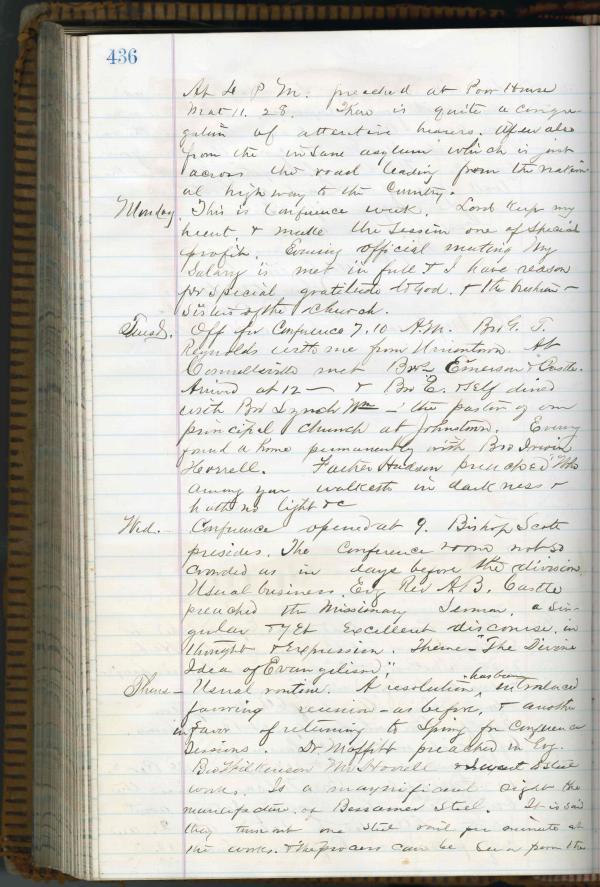 436
At 4 P M. preached at Poor House
Mat 11. 28. There is quite a congre-
gation of attentive hearers. A few also
from the insane asylum which is just
across the road leading from the nation-
al high way to the Country.
Monday. This is Conference week. Lord keep my
heart & make the session one of special
profit. Evening official meeting My
Salary is met in full & I have reason
for special gratitude to God. & the brethren &
Sisters of the church.
Tuesd. Off for Conference 7.10 A.M. Bro G. T.
Reynolds with me from Uniontown. At
Connellsville met Bros Emerson & Castle.
Arrived at 12 — & Bro E. & self dined
with Bro Lynch Wm — the pastor of our
principal church at Johnstown. Evening
found a home permanently with Bro Irwin
Horrell. Father Hudson preached "Who
among you walketh in darkness &
hath no light &c
Wed. — Conference opened at 9. Bishop Scott
presides. The Conference room not so
crowded as in days before the division.
Usual business. Evg Rev A.B. Castle
preached the Missionary Sermon. a sin-
gular & yet excellent discourse in
thought & expression. Theme — "The Divine
Idea of Evangelism".
Thurs — Usual routine. A resolution, has been introduced
favoring reunion — as before, & another
in favor of returning to Spring for Conference
Sessions. Dr Moffitt preached in Evg.
Bro Wilkinson Mr Horrell & I went to steel
works. Is a magnificent sight the
manufacture of Bessamer Steel. It is said
they turn out one steel rail per minute at
the works. & the process can be seen from the